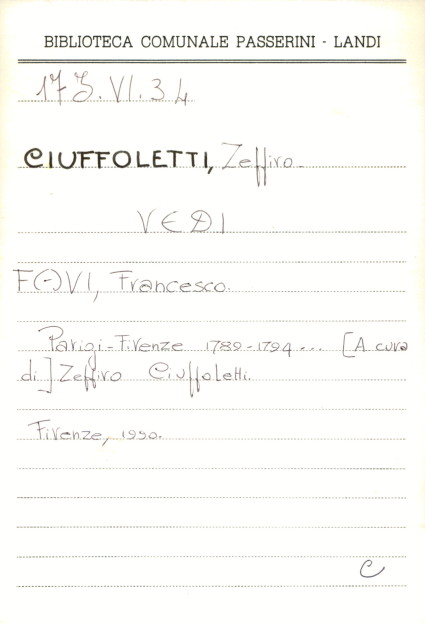 BIBLIOTECA COMUNALE PASSERINI - LANDI
17 J.VI.34
CIUFFOLETTI, Zeffiro.
VEDI
F(-)VI, Francesco.
Parigi-Firenze 1789-1794... [A cura
di] Zeffiro Ciuffoletti.
Firenze, 1990.
C